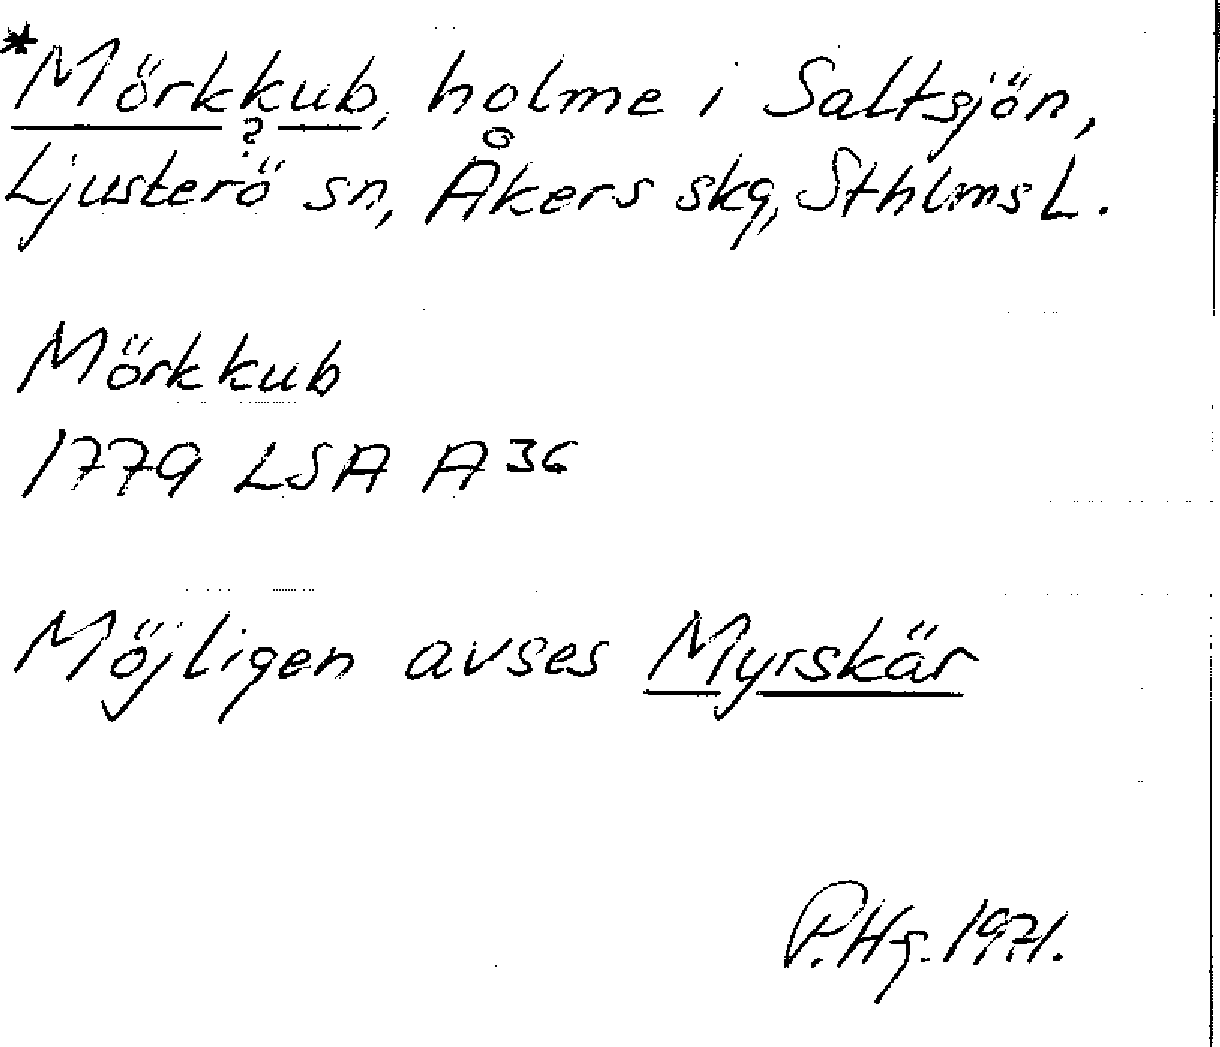 *Mörkkub, holme i Saltsjön,
?
Ljusterö sn, Åkers skg, Sthlms L.
Mörkkub
1779 LSA A 36
Möjligen avses Myrskär
P.Hg. 1971.